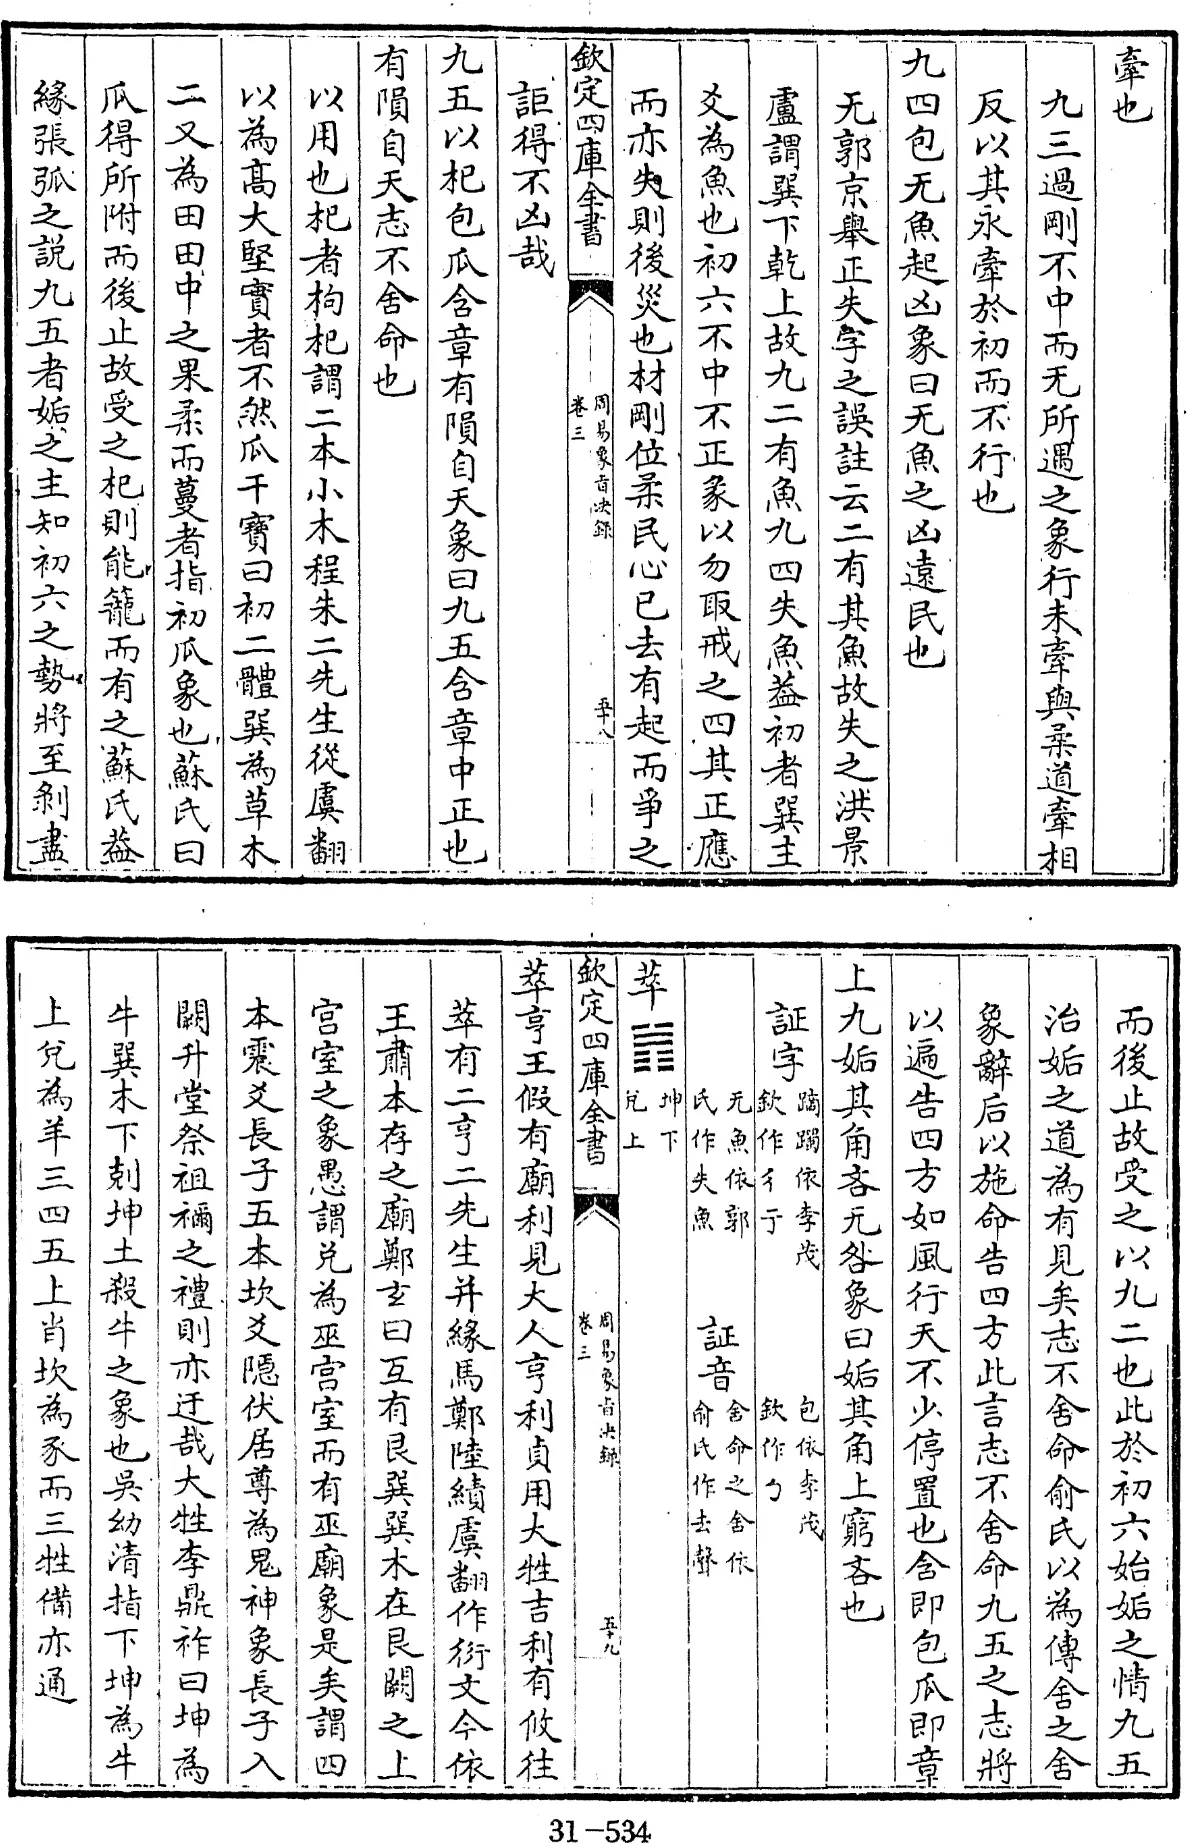 牽也
九三過剛不中而无所遇之象行未牽與柔道牽相
反以其永牽於初而不行也
九四包无魚起凶象曰无魚之凶遠民也
无郭京舉正失字之誤註云二有其魚故失之洪景
盧謂巽下乾上故九二有魚九四失魚葢初者巽主
爻為魚也初六不中不正彖以勿取戒之四其正應
而亦失則後災也材剛位柔民心已去有起而爭之
欽定四庫全書
周易象旨決録
卷三
五十八
詎得不凶哉
九五以杞包瓜含章有隕自天象曰九五含章中正也
有隕自天志不舍命也
以用也杞者枸杞謂二本小木程朱二先生從虞翻
以為髙大堅實者不然瓜干寶曰初二體巽為草木
二又為田田中之果柔而蔓者指初瓜象也蘇氏曰
瓜得所附而後止故受之杞則能籠而有之蘇氏葢
緣張弧之説九五者姤之主知初六之勢將至剝盡
而後止故受之以九二也此於初六始姤之情九五
治姤之道為有見矣志不舍命俞氏以為傳舍之舍
象辭后以施命告四方此言志不舍命九五之志將
以遍告四方如風行天不少停置也含即包瓜即章
上九姤其角吝无咎象曰姤其角上窮吝也
証字
蹢躅依李茂
欽作彳亍
无魚依郭
氏作失魚
証音
包依李茂
欽作勹
舍命之舍依
俞氏作去聲
萃䷬
坤下
兑上
欽定四庫全書
周易象旨決録
卷三
五十九
萃亨王假有廟利見大人亨利貞用大牲吉利有攸往
萃有二亨二先生并緣馬鄭陸績虞翻作衍文今依
王肅本存之廟鄭玄曰互有艮巽巽木在艮闕之上
宫室之象愚謂兑為巫宫室而有巫廟象是矣謂四
本震爻長子五本坎爻隱伏居尊為鬼神象長子入
闕升堂祭祖禰之禮則亦迂哉大牲李鼎祚曰坤為
牛巽木下剋坤土殺牛之象也吳幼清指下坤為牛
上兑為羊三四五上肖坎為豕而三牲備亦通
31-534